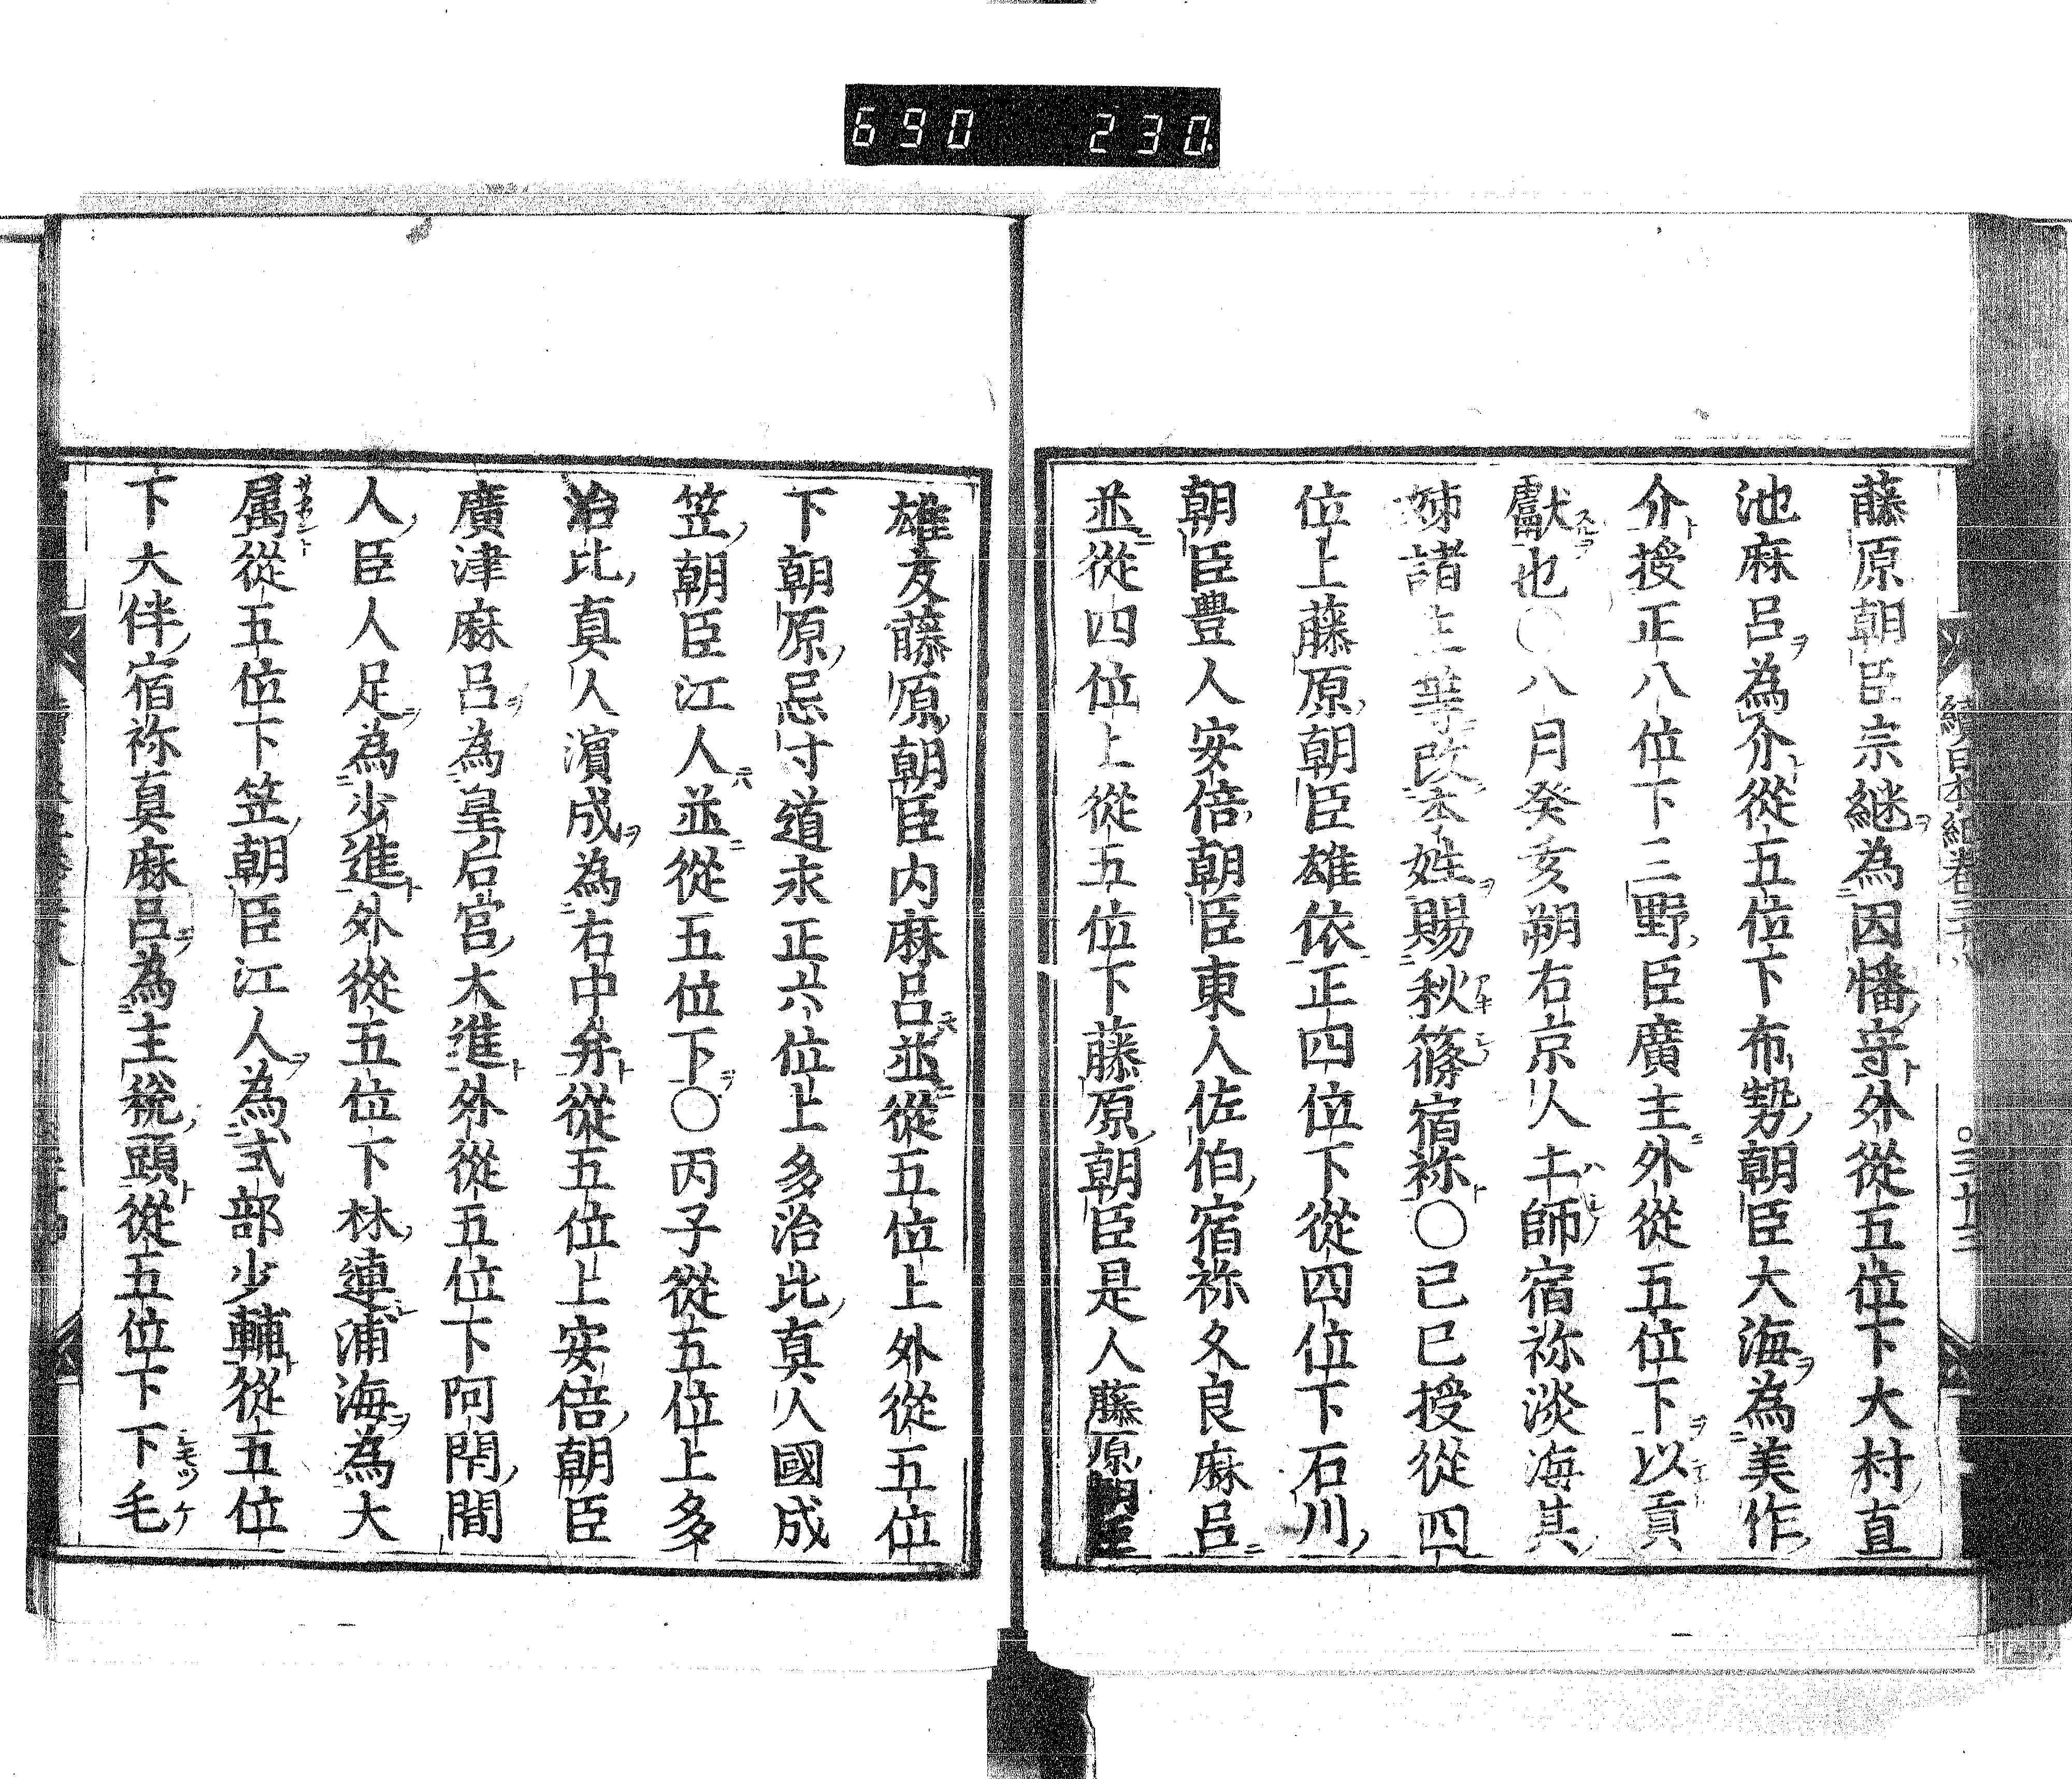 690 230
藤原朝臣宗継ヲ為因幡守ト外從五位下大村直
池麻呂ヲ為介ト從五位下布勢朝臣大海ヲ為美作
介ト授正八位下三野臣廣主ニ外從五位下ヲ以貢
獻スルヲ也〇八月癸亥朔右京人土師宿祢淡海其
姉諸主等改本姓ヲ賜秋篠宿祢ト〇己巳授從四
位上藤原朝臣雄依正四位下從四位下石川
朝臣豊人安倍朝臣東人佐伯宿祢久良麻呂ニ
並ニ從四位上從五位下藤原朝臣是人藤原朝臣
雄友藤原朝臣内麻呂ニ並ニ從五位上外從五位
下朝原忌寸道永正六位上多治比真人國成
笠朝臣江人ニ並ニ從五位下ヲ〇丙子從五位上多
治比真人濵成ヲ為右中弁ト從五位上安倍朝臣
廣津麻呂ヲ為皇后宮大進ト外從五位下阿閇間
人臣人足ヲ為少進ト外從五位下林連浦海ヲ為大
属ト從五位下笠朝臣江人ヲ為式部少輔ト從五位
下大伴宿祢真麻呂ヲ為主稅頭ト從五位下下毛
續日本紀巻三十八